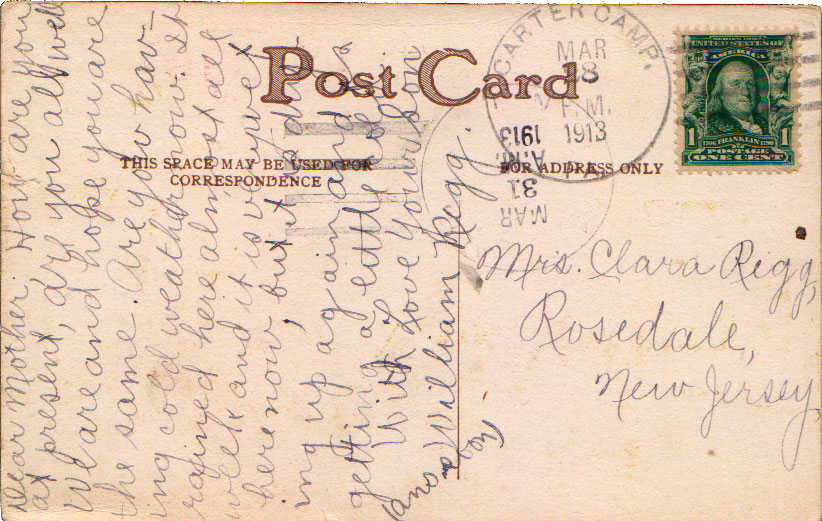 Post Card
THIS SPACE MAY BE USED FOR
CORRESPONDENCE
FOR ADDRESS ONLY
CARTER CAMP,
MAR
28
P.M.
1913
PA.
MAR
31
A.M.
1913
SERIES 1902
UNITED STATES OF
AMERICA
1 1
1706 FRANKLIN 1790
POSTAGE
ONE CENT
Mrs. Clara Regg,
Rosedale,
New Jersey,
Dear Mother. How are you
at present, are you all well
We are and hope you are
the same. Are you hav-
ing cold weather now. It
rained here almost all
week and it is very wet
here now, but it is
ing up again and is
getting a little colder.
With Love Your Son
and William Regg.